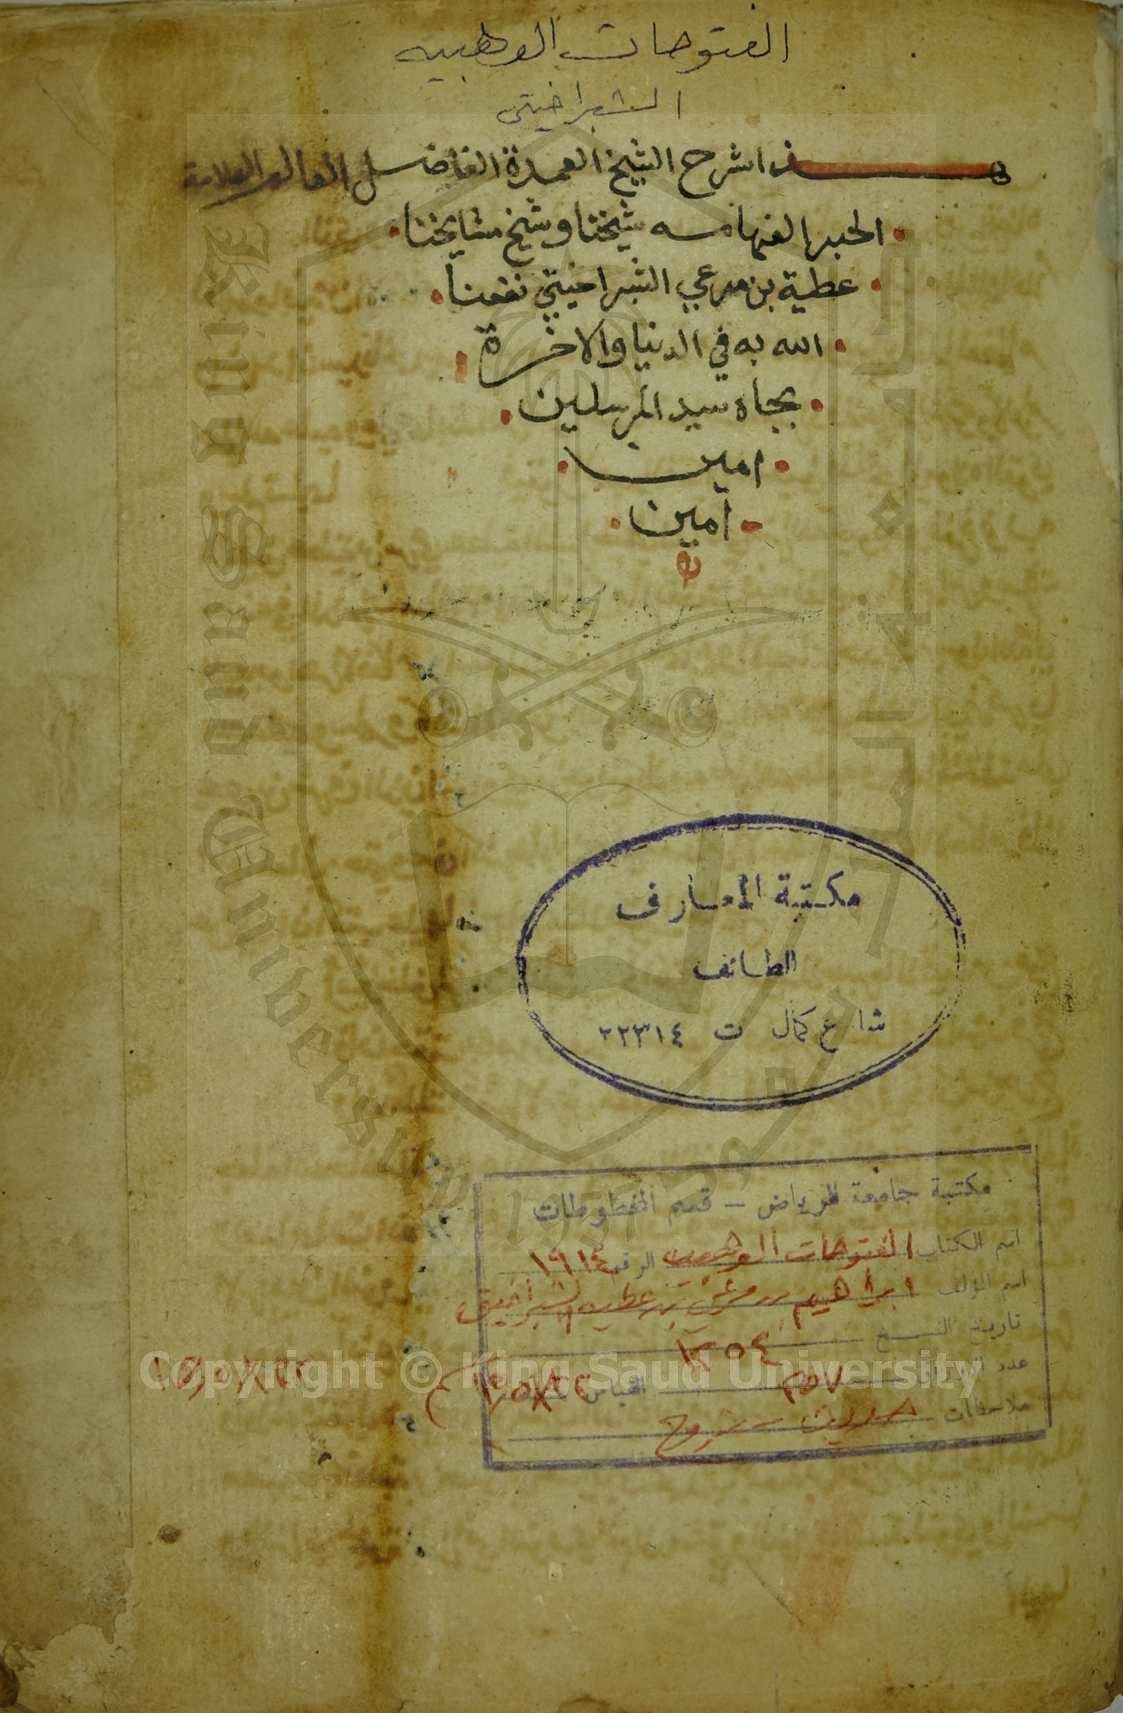 الفتوحات الوهبيه
الشبراخيتى
هذا شرح الشيخ العمدة الفاضل العالم العلامة
الحبر الفهامه شيخنا وشيخ مشايخنا
عطية بن مرعي الشبراخيتي نفعنا
الله به في الدنيا والاخرة
بجاه سيد المرسلين
امين
آمين
مكتبة المعارف
الطائف
شارع كمال ت ٢٢٣١٤
مكتبة جامعة الرياض - قسم المخطوطات
اسم الكتاب الفتوحات الوهبيه الرقم ١٩١٤
اسم المؤلف ابراهيم بن مرعي بن عطيه الشبراخيتى
تاريخ النسخ ١٢٥٤
عدد ٢٥٧ القياس
ملاحظات حديث - شروح
Copyright © King Saud University
King Saud University
1957